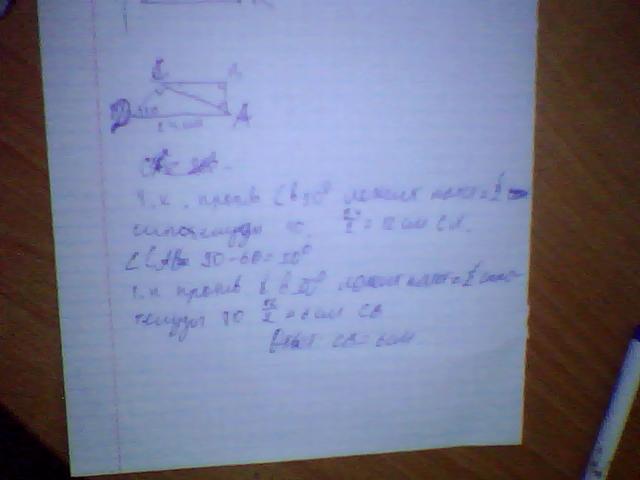 C
D
A
24 см
т.к. против ∠ в 30° лежит катет = 1/2
гипотенузы то, 24/2 = 12 см CA.
∠CAB = 90 - 60 = 30°
т.к против ∠ в 30° лежит катет = 1/2 гипо-
тенузы то 12/2 = 6 см CB
Ответ CB = 6 см